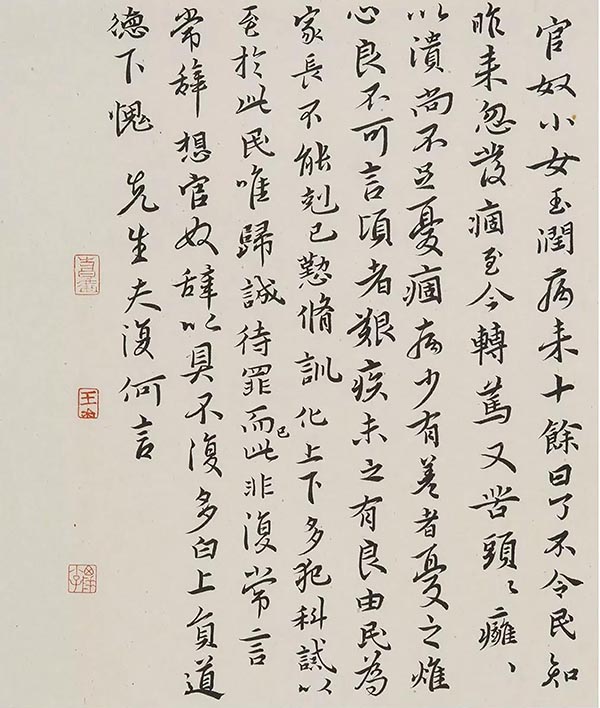 官奴小女玉潤病来十餘日了不令民知
昨来忽發痼至今轉篤又苦頭〻癰〻
以潰尚不足憂痼病少有差者憂之燋
心良不可言頃者艱疾未之有良由民為
家長不能剋己懃脩訓化上下多犯科誡以
至於此民唯歸誠待罪而已此非復常言
常辭想官奴辭以具不復多白上負道
德下愧 先生夫復何言
王